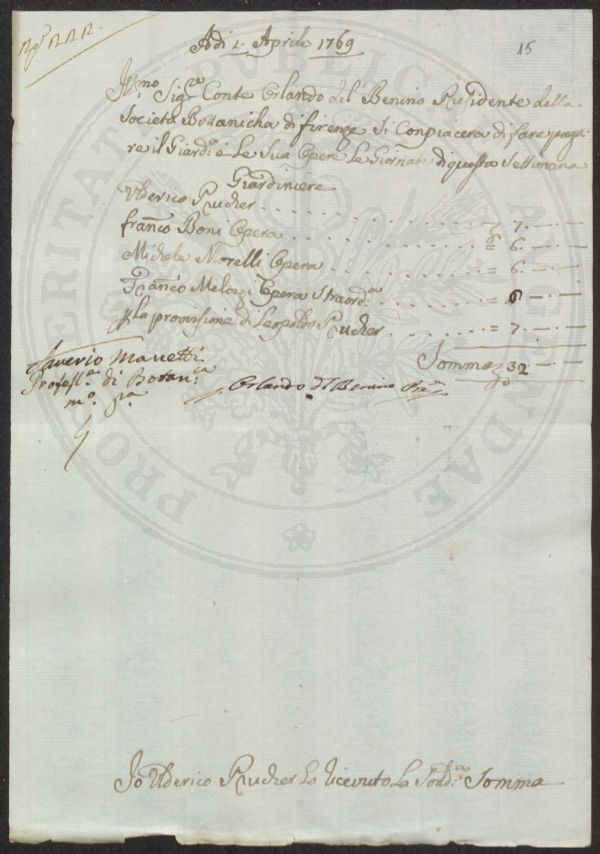 15
Adi 1. Aprile 1769
Ill.mo Sig.re Conte Orlando del Benino Presidente della
Società Bottanicha di firenze Si Conpiacera di fare paga
re il Giard.e e Le Sua Opere Le Giornate di questa Settimana
Giardiniere
Ulderico Prucher . . . . . . . £ 7. — . —
Franc.o Boni Opera . . . . . . . = 6. — . —
Michele Morelli Opera . . . . . . . = 6. — . —
Franc.o Melozi Opera Straord.a . . . . = 6 — . —
P la provisione di Leopoldo Prucher . . . . = 7. — . —
Somma £ 32 — . —
Saverio Manetti
Profess.e di Botan.ca
m.o p.a
Orlando del Benino Pre.
Io Ulderico Prucher ho ricevuto La Sud.a Somma
PRO VERITATE PUBLICE AGENDAE